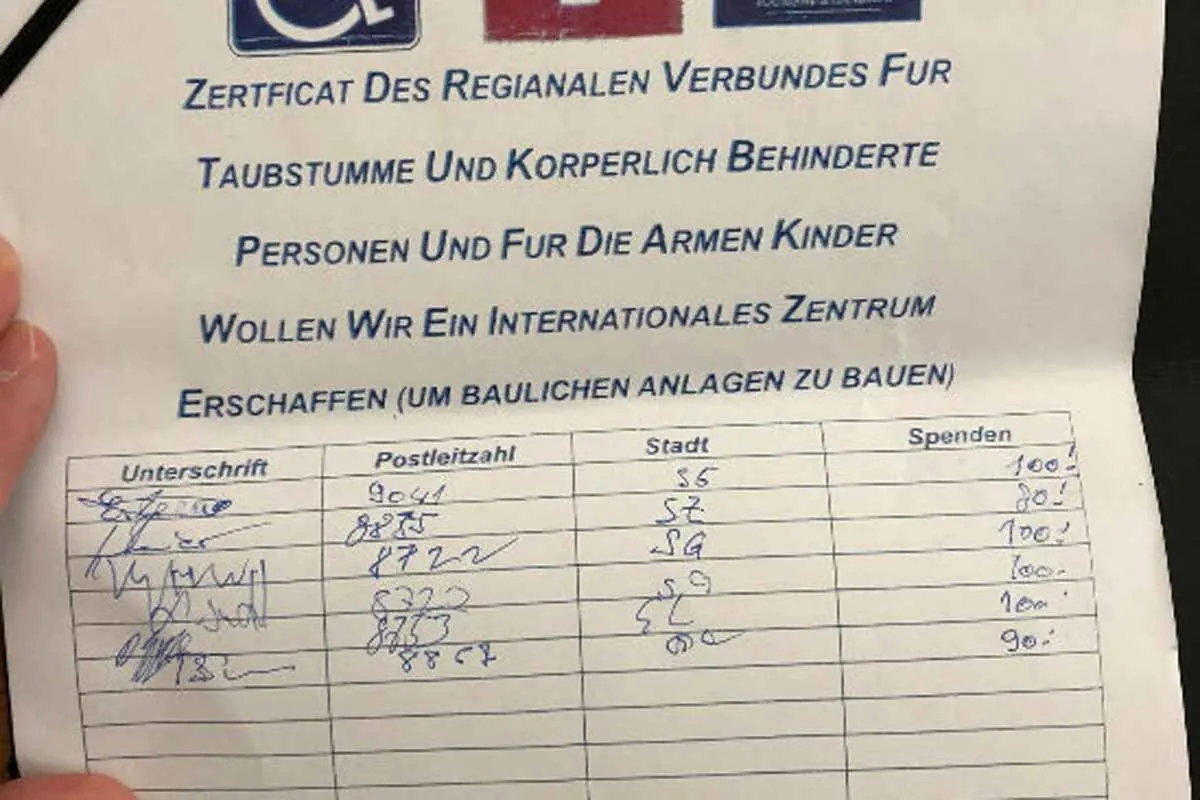 ZERTFICAT DES REGIANALEN VERBUNDES FUR
TAUBSTUMME UND KORPERLICH BEHINDERTE
PERSONEN UND FUR DIE ARMEN KINDER
WOLLEN WIR EIN INTERNATIONALES ZENTRUM
ERSCHAFFEN (UM BAULICHEN ANLAGEN ZU BAUEN)
Unterschrift Postleitzahl Stadt Spenden
9041 SG 100.-
8855 SZ 80.-
8722 SG 100.-
8722 SG 100.-
8753 100.-
8867 90.-